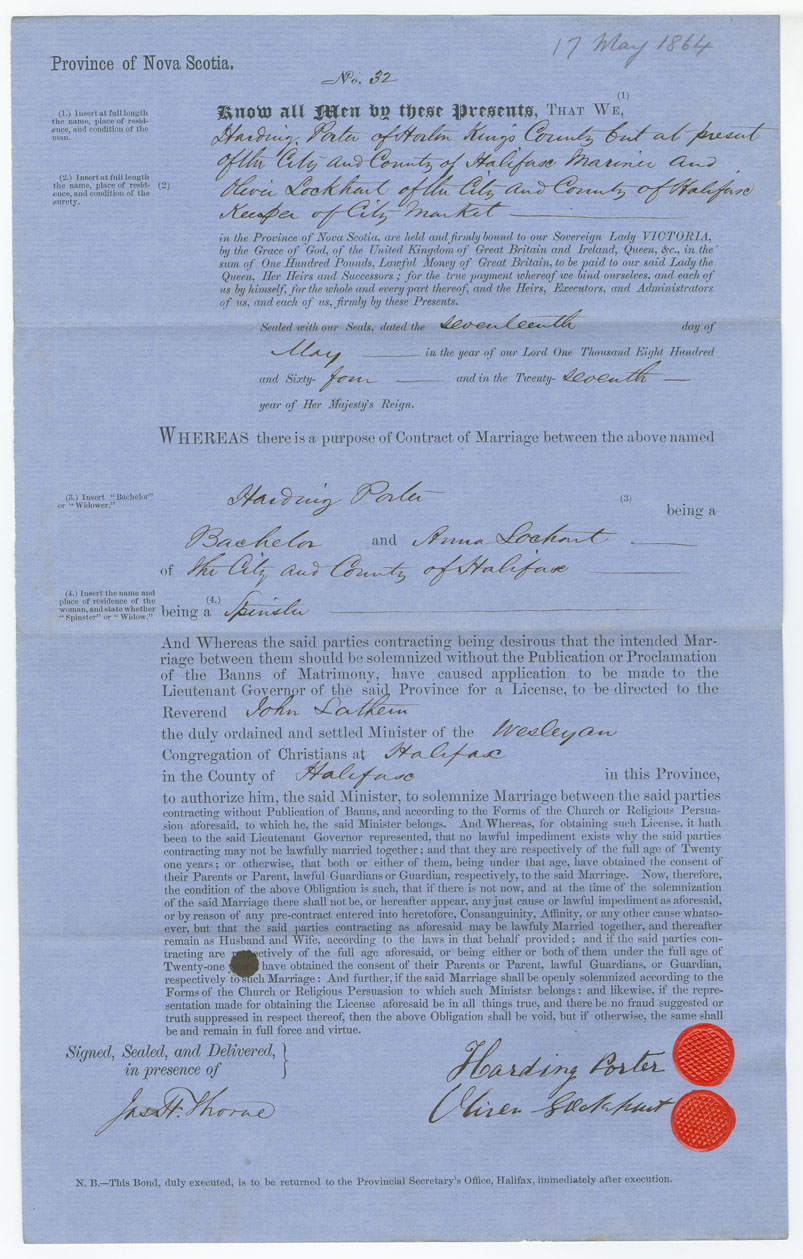 17 May 1864
Province of Nova Scotia.
No. 32
(1)
Know all Men by these Presents, THAT WE,
(1.) Insert at full length
the name, place of resid-
ence, and condition of the
man.
Harding Porter of Horton Kings County but at present
of the City and County of Halifax Mariner and
(2.) Insert at full length
the name, place of resid-
ence, and condition of the
surety.
(2)
Oliver Lockhart of the City and County of Halifax
Keeper of City Market
in the Province of Nova Scotia, are held and firmly bound to our Sovereign Lady VICTORIA,
by the Grace of God, of the United Kingdom of Great Britain and Ireland, Queen, &c., in the
sum of One Hundred Pounds, Lawful Money of Great Britain, to be paid to our said Lady the
Queen, Her Heirs and Successors; for the true payment whereof we bind ourselves, and each of
us by himself, for the whole and every part thereof, and the Heirs, Executors, and Administrators
of us, and each of us, firmly by these Presents.
Sealed with our Seals, dated the seventeenth day of
May in the year of our Lord One Thousand Eight Hundred
and Sixty- four and in the Twenty- seventh
year of Her Majesty's Reign.
WHEREAS there is a purpose of Contract of Marriage between the above named
(3.) Insert "Bachelor"
or "Widower."
Harding Porter (3) being a
Bachelor and Anna Lockhart
of the City and County of Halifax
(4.) Insert the name and
place of residence of the
woman, and state whether
"Spinster" or "Widow."
being a (4.) Spinster
And Whereas the said parties contracting being desirous that the intended Mar-
riage between them should be solemnized without the Publication or Proclamation
of the Banns of Matrimony, have caused application to be made to the
Lieutenant Governor of the said Province for a License, to be directed to the
Reverend John Lathern
the duly ordained and settled Minister of the Wesleyan
Congregation of Christians at Halifax
in the County of Halifax in this Province,
to authorize him, the said Minister, to solemnize Marriage between the said parties
contracting without Publication of Banns, and according to the Forms of the Church or Religious Persua-
sion aforesaid, to which he, the said Minister belongs. And Whereas, for obtaining such License, it hath
been to the said Lieutenant Governor represented, that no lawful impediment exists why the said parties
contracting may not be lawfully married together; and that they are respectively of the full age of Twenty
one years; or otherwise, that both or either of them, being under that age, have obtained the consent of
their Parents or Parent, lawful Guardians or Guardian, respectively, to the said Marriage. Now, therefore,
the condition of the above Obligation is such, that if there is not now, and at the time of the solemnization
of the said Marriage there shall not be, or hereafter appear, any just cause or lawful impediment as aforesaid,
or by reason of any pre-contract entered into heretofore, Consanguinity, Affinity, or any other cause whatso-
ever, but that the said parties contracting as aforesaid may be lawfuly Married together, and thereafter
remain as Husband and Wife, according to the laws in that behalf provided; and if the said parties con-
tracting are respectively of the full age aforesaid, or being either or both of them under the full age of
Twenty-one have obtained the consent of their Parents or Parent, lawful Guardians, or Guardian,
respectively to such Marriage: And further, if the said Marriage shall be openly solemnized according to the
Forms of the Church or Religious Persuasion to which such Ministsr belongs: and likewise, if the repre-
sentation made for obtaining the License aforesaid be in all things true, and there be no fraud suggested or
truth suppressed in respect thereof, then the above Obligation shall be void, but if otherwise, the same shall
be and remain in full force and virtue.
Signed, Sealed, and Delivered,
in presence of
Harding Porter
Jas. H. Thorne
Oliver Lockhart
N. B.—This Bond, duly executed, is to be returned to the Provincial Secretary's Office, Halifax, immediately after execution.